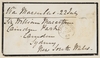 Via Marseilles 22 July
Sir William Macarthur
Camden Park
Camden
Sydney
New South Wales.